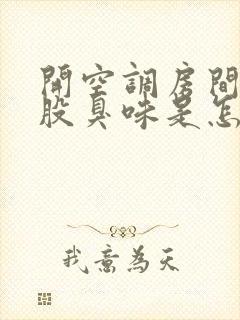 開空調房間
股臭味是怎
我意為天